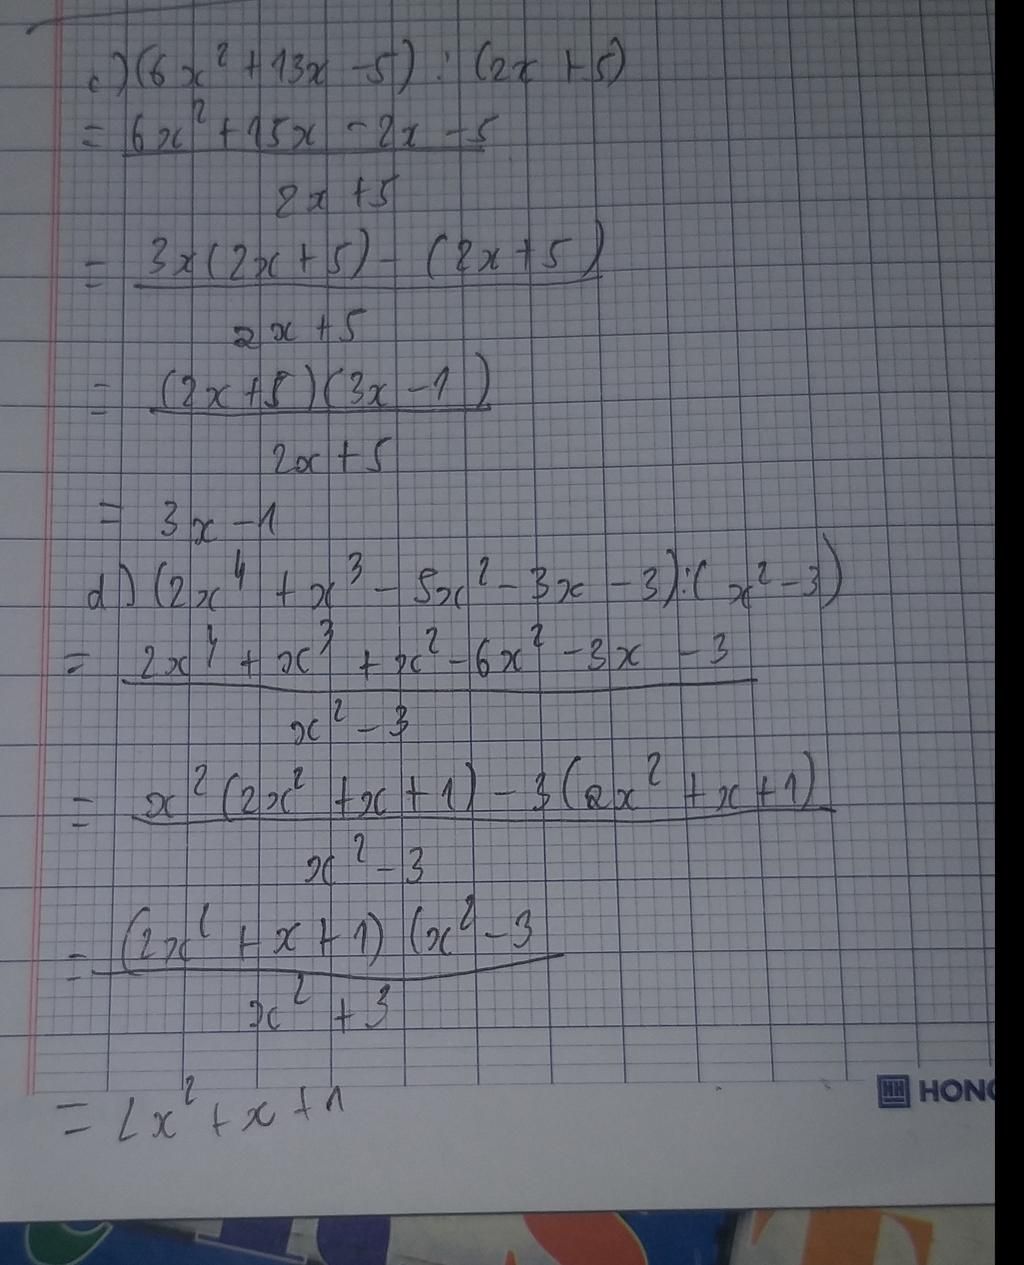 c) (6x² + 13x - 5) : (2x + 5)
= 6x² + 15x - 2x - 5
2x + 5
= 3x(2x + 5) - (2x + 5)
2x + 5
= (2x + 5)(3x - 1)
2x + 5
= 3x - 1
d) (2x⁴ + x³ - 5x² - 3x - 3) : (x² - 3)
= 2x⁴ + x³ + x² - 6x² - 3x - 3
x² - 3
= x²(2x² + x + 1) - 3(2x² + x + 1)
x² - 3
= (2x² + x + 1)(x² - 3
x² + 3
HH HONG
= 2x² + x + 1